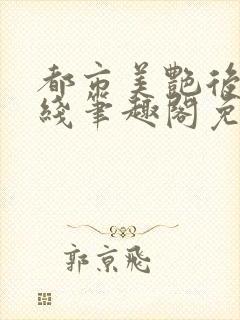 都市美艷後
綫筆趣閣免
郭京飛